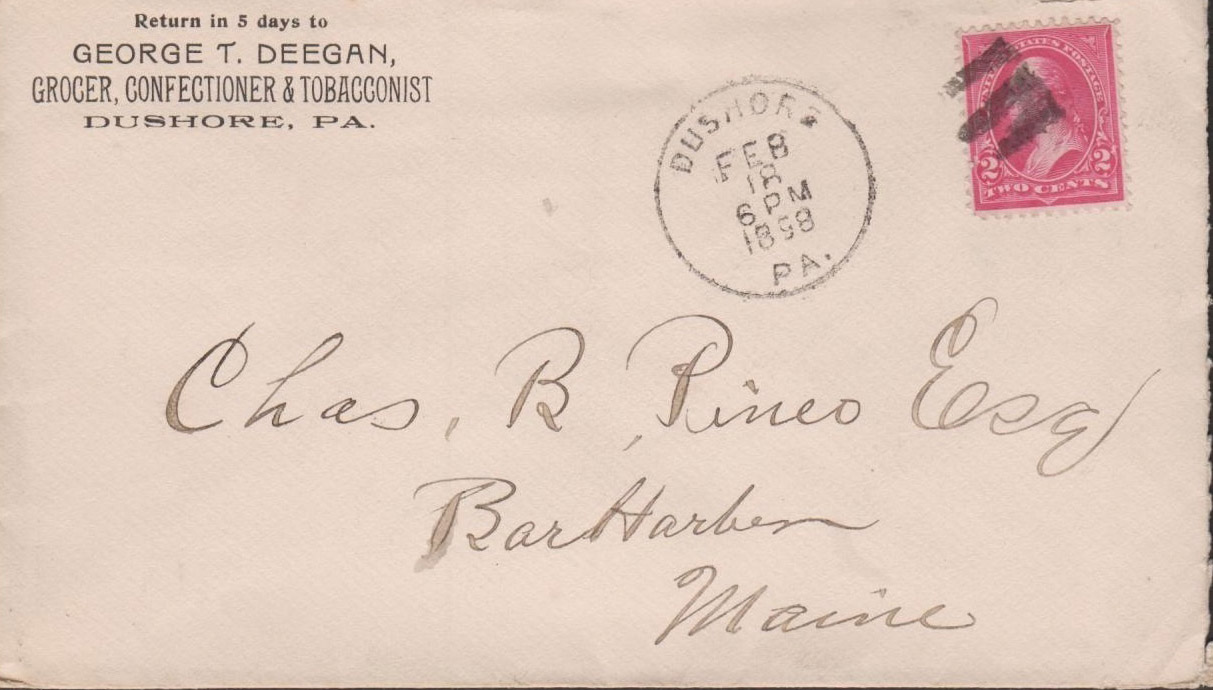 Return in 5 days to
GEORGE T. DEEGAN,
GROCER, CONFECTIONER & TOBACCONIST
DUSHORE, PA.
DUSHORE
FEB
18
6 PM
1898
PA.
UNITED STATES POSTAGE
2 2
TWO CENTS
Chas. B. Pineo Esq
Bar Harbor
Maine